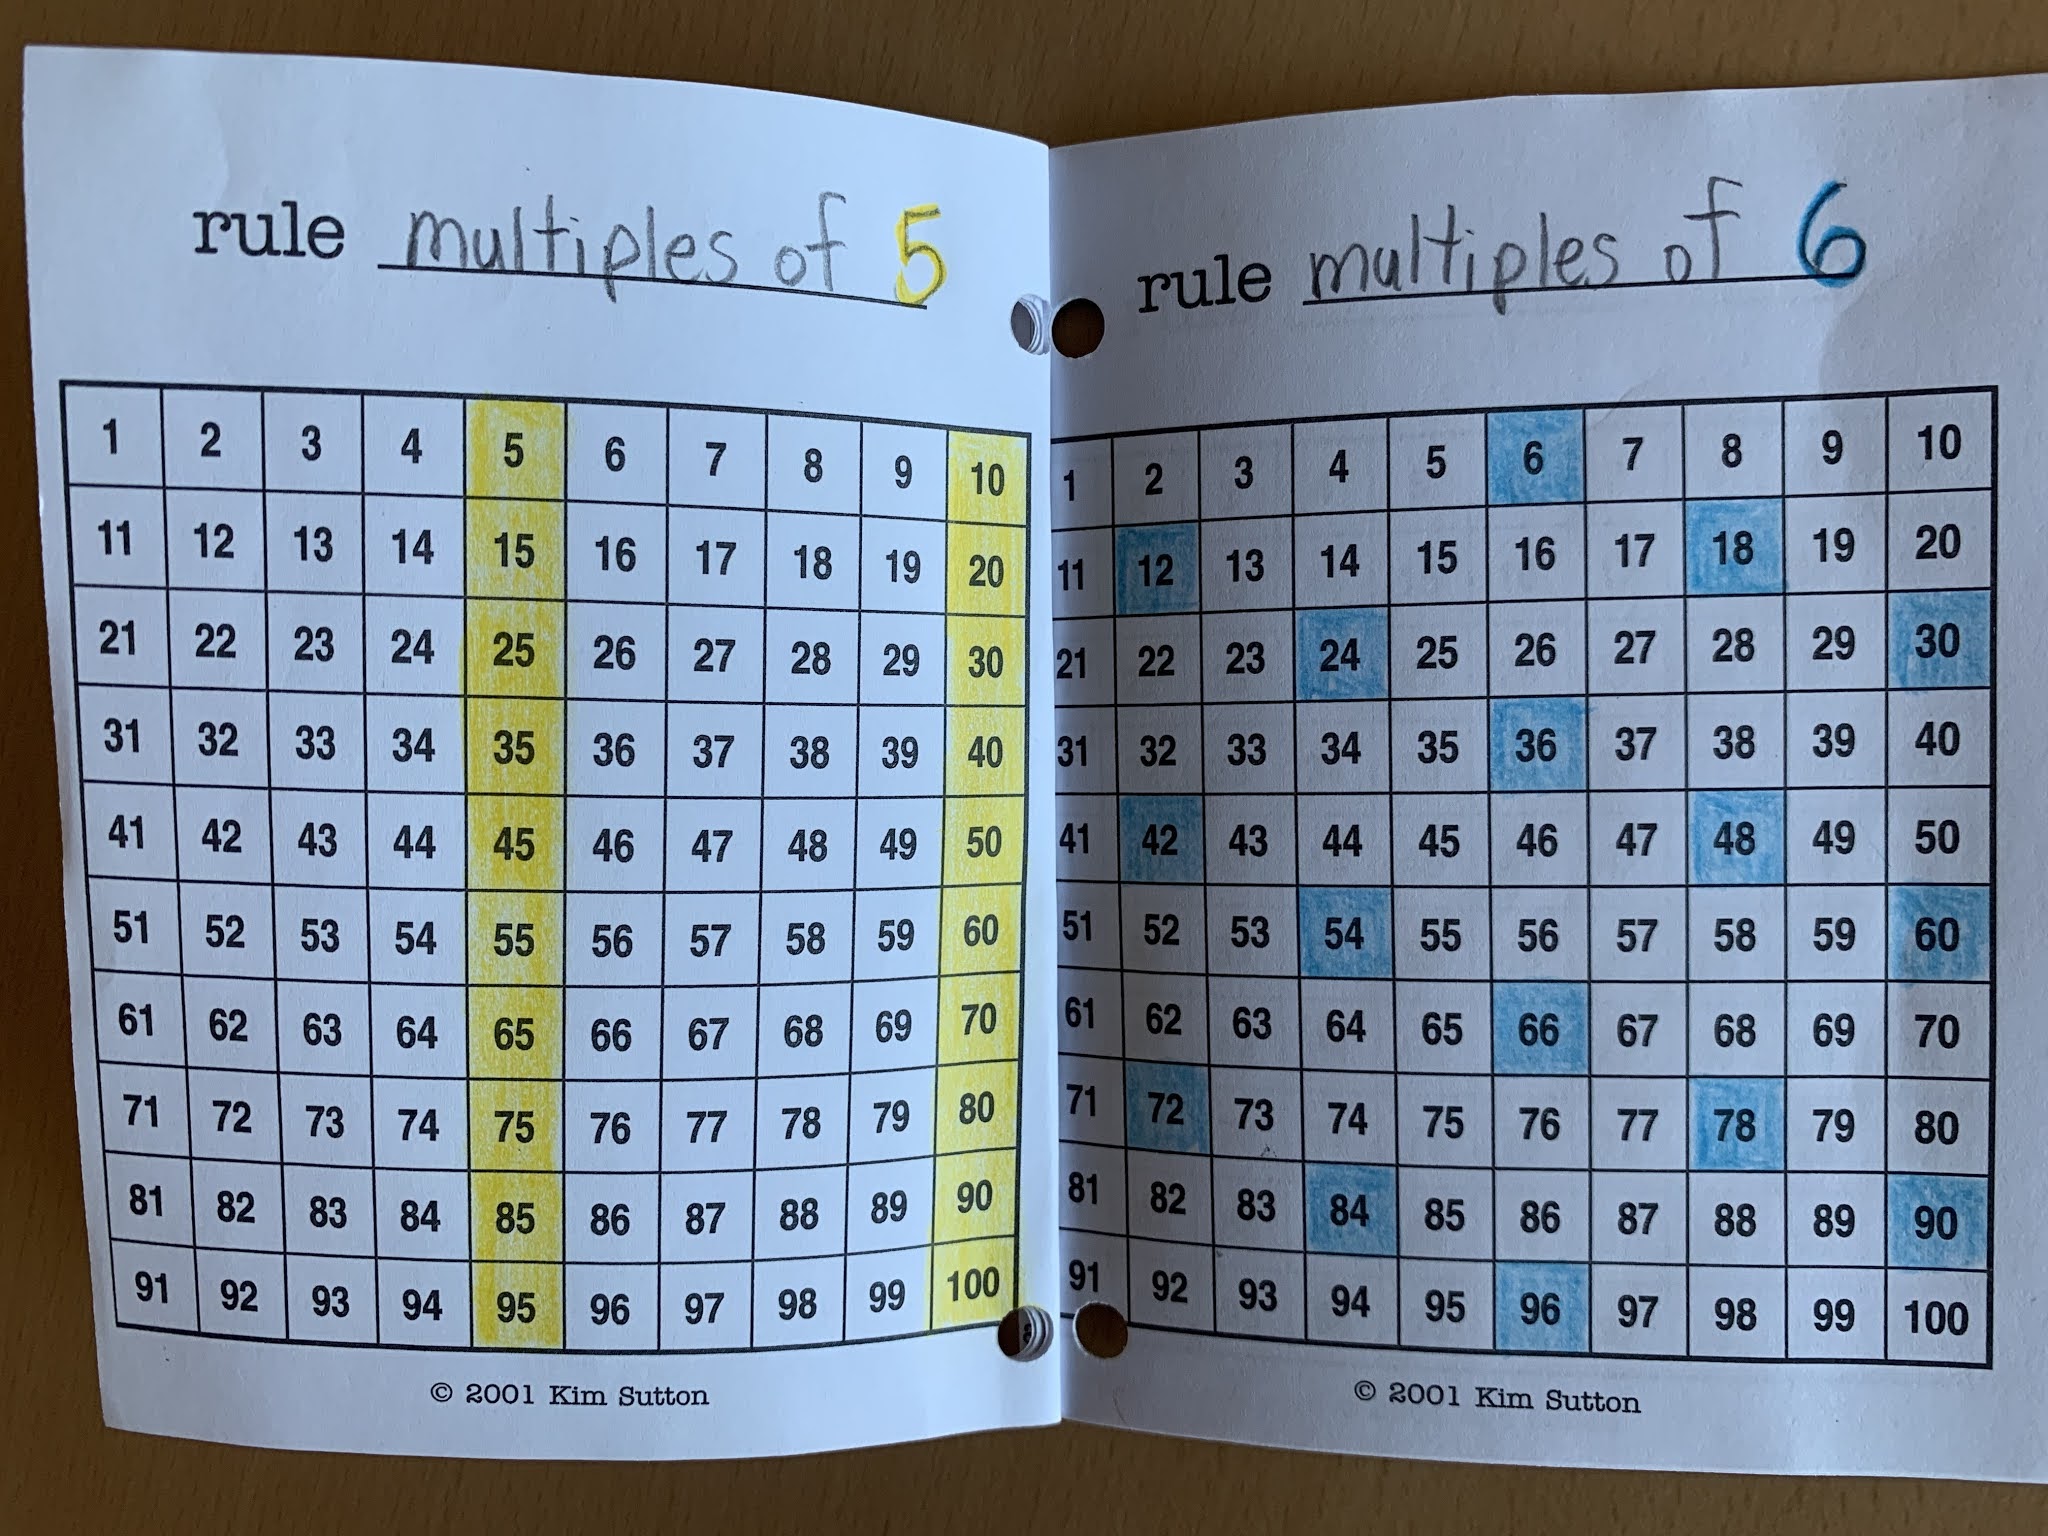 rule multiples of 5
1 2 3 4 5 6 7 8 9 10
11 12 13 14 15 16 17 18 19 20
21 22 23 24 25 26 27 28 29 30
31 32 33 34 35 36 37 38 39 40
41 42 43 44 45 46 47 48 49 50
51 52 53 54 55 56 57 58 59 60
61 62 63 64 65 66 67 68 69 70
71 72 73 74 75 76 77 78 79 80
81 82 83 84 85 86 87 88 89 90
91 92 93 94 95 96 97 98 99 100
© 2001 Kim Sutton
rule multiples of 6
1 2 3 4 5 6 7 8 9 10
11 12 13 14 15 16 17 18 19 20
21 22 23 24 25 26 27 28 29 30
31 32 33 34 35 36 37 38 39 40
41 42 43 44 45 46 47 48 49 50
51 52 53 54 55 56 57 58 59 60
61 62 63 64 65 66 67 68 69 70
71 72 73 74 75 76 77 78 79 80
81 82 83 84 85 86 87 88 89 90
91 92 93 94 95 96 97 98 99 100
© 2001 Kim Sutton